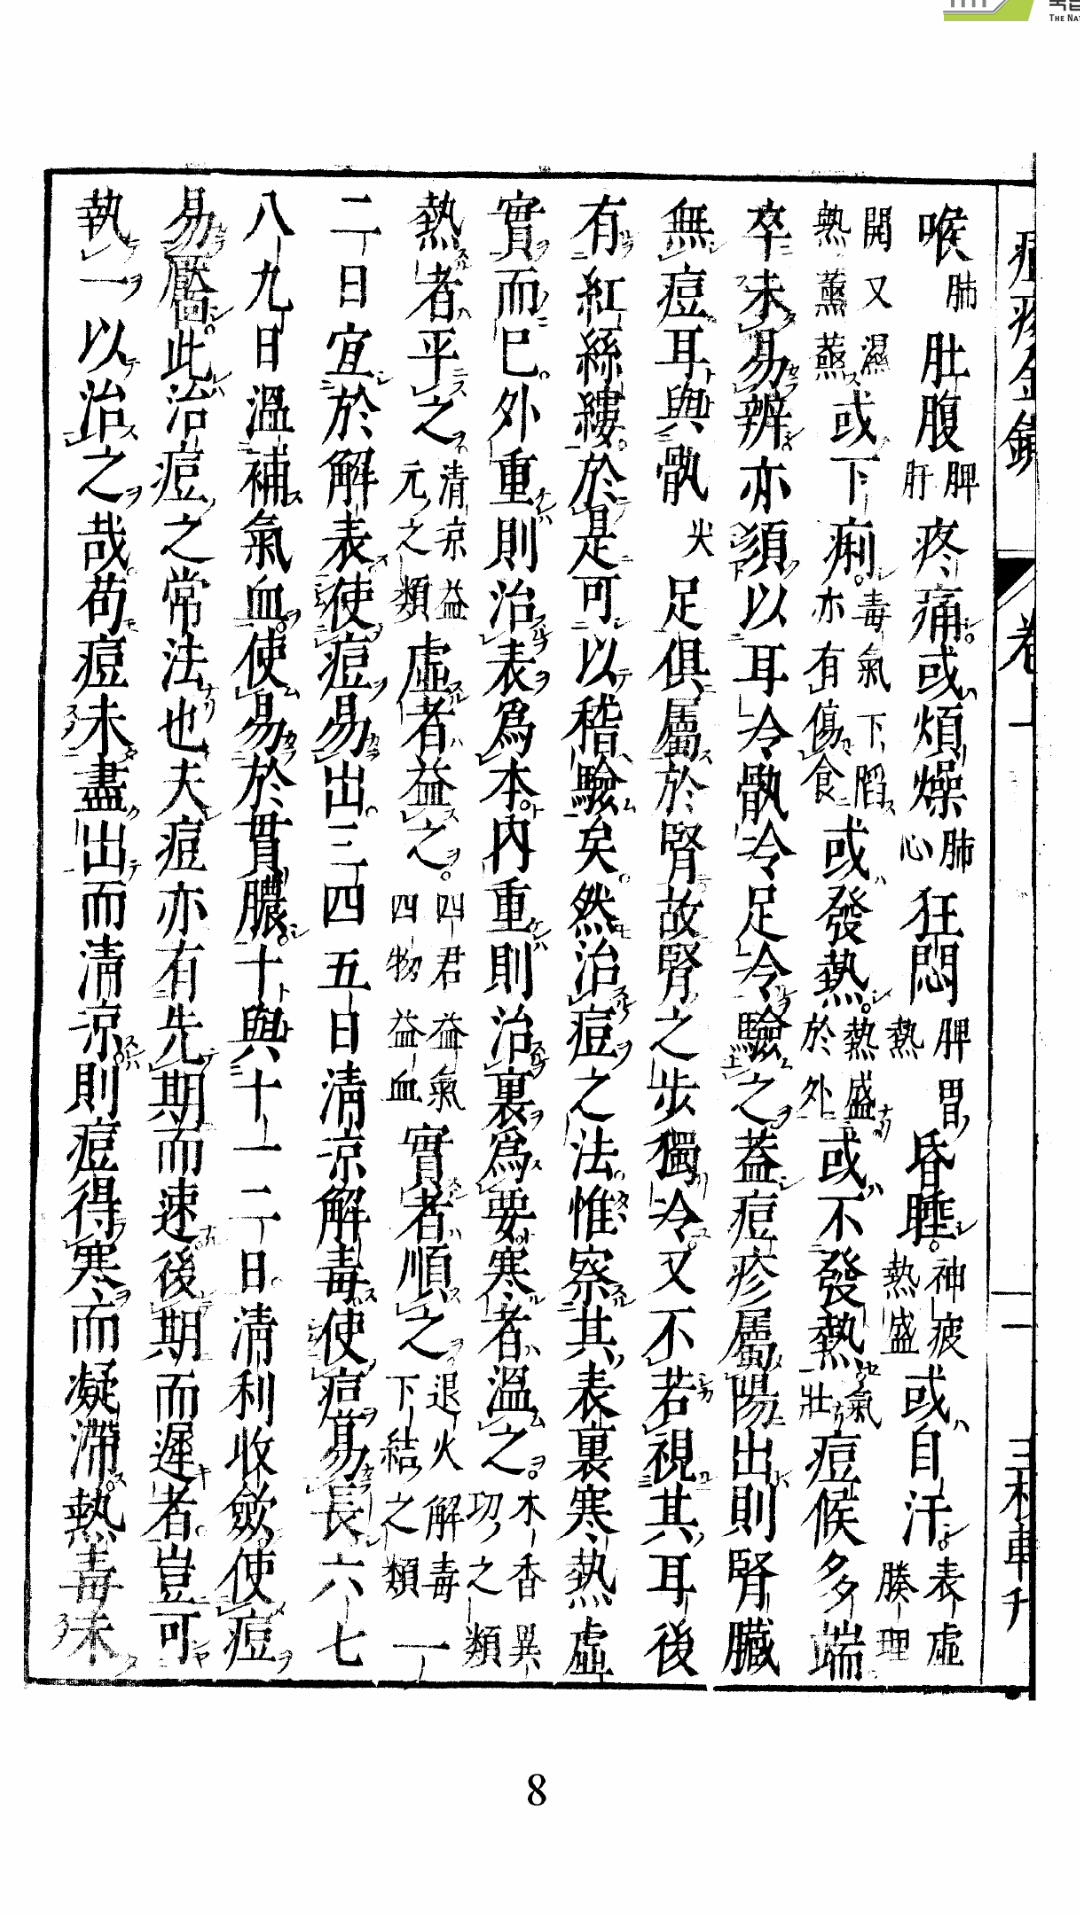 喉肺肚腹脾肝疼痛或煩燥肺心狂悶脾胃熱昏睡神疲熱盛或自汗表虛腠理
開又濕熱薰蒸或下痢毒氣下陷亦有傷食或發熱熱盛於外或不發熱氣壯痘候多端
卒未易辨亦須以耳冷骩冷足冷驗之蓋痘疹屬陽出則腎臟
無痘耳與骩尖足俱屬於腎故腎之步獨冷又不若視其耳後
有紅絲縷於是可以稽驗矣然治痘之法惟察其表裏寒熱虛
實而已外重則治表爲本內重則治裏爲要寒者溫之木香異功之類
熱者平之清凉益元之類虛者益之四君益氣四物益血實者順之退火解毒下結之類一
二日宜於解表使痘易出三四五日清凉解毒使痘易長六七
八九日溫補氣血使易於貫膿十與十一二日清利收斂使痘
易靨此治痘之常法也夫痘亦有先期而速後期而遲者豈可
執一以治之哉苟痘未盡出而清凉則痘得寒而凝滯熱毒未
卷一
二
8